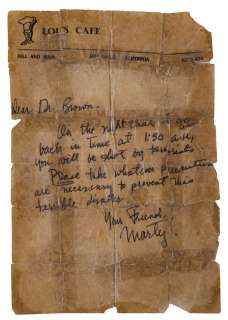 LOU'S CAFE
CALIFORNIA
Dear Dr. Brown,
On the night that I go
back in time at 1:30 A.M,
you will be shot by terrorists.
Please take whatever precautions
are necessary to prevent this
terrible disaster.
Your Friend,
Marty